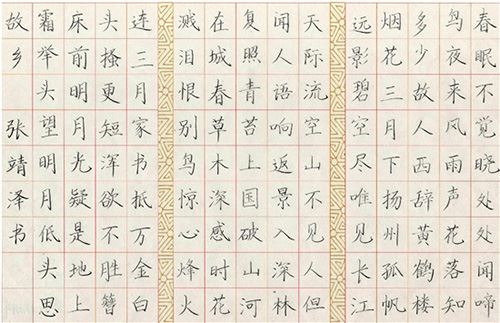 春眠不觉晓处处闻啼
鸟夜来风雨声花落知
多少故人西辞黄鹤楼
烟花三月下扬州孤帆
远影碧空尽唯见长江
天际流空山不见人但
闻人语响返景入深林
复照青苔上国破山河
在城春草木深感时花
溅泪恨别鸟惊心烽火
连三月家书抵万金白
头搔更短浑欲不胜簪
床前明月光疑是地上
霜举头望明月低头思
故乡 张靖泽书